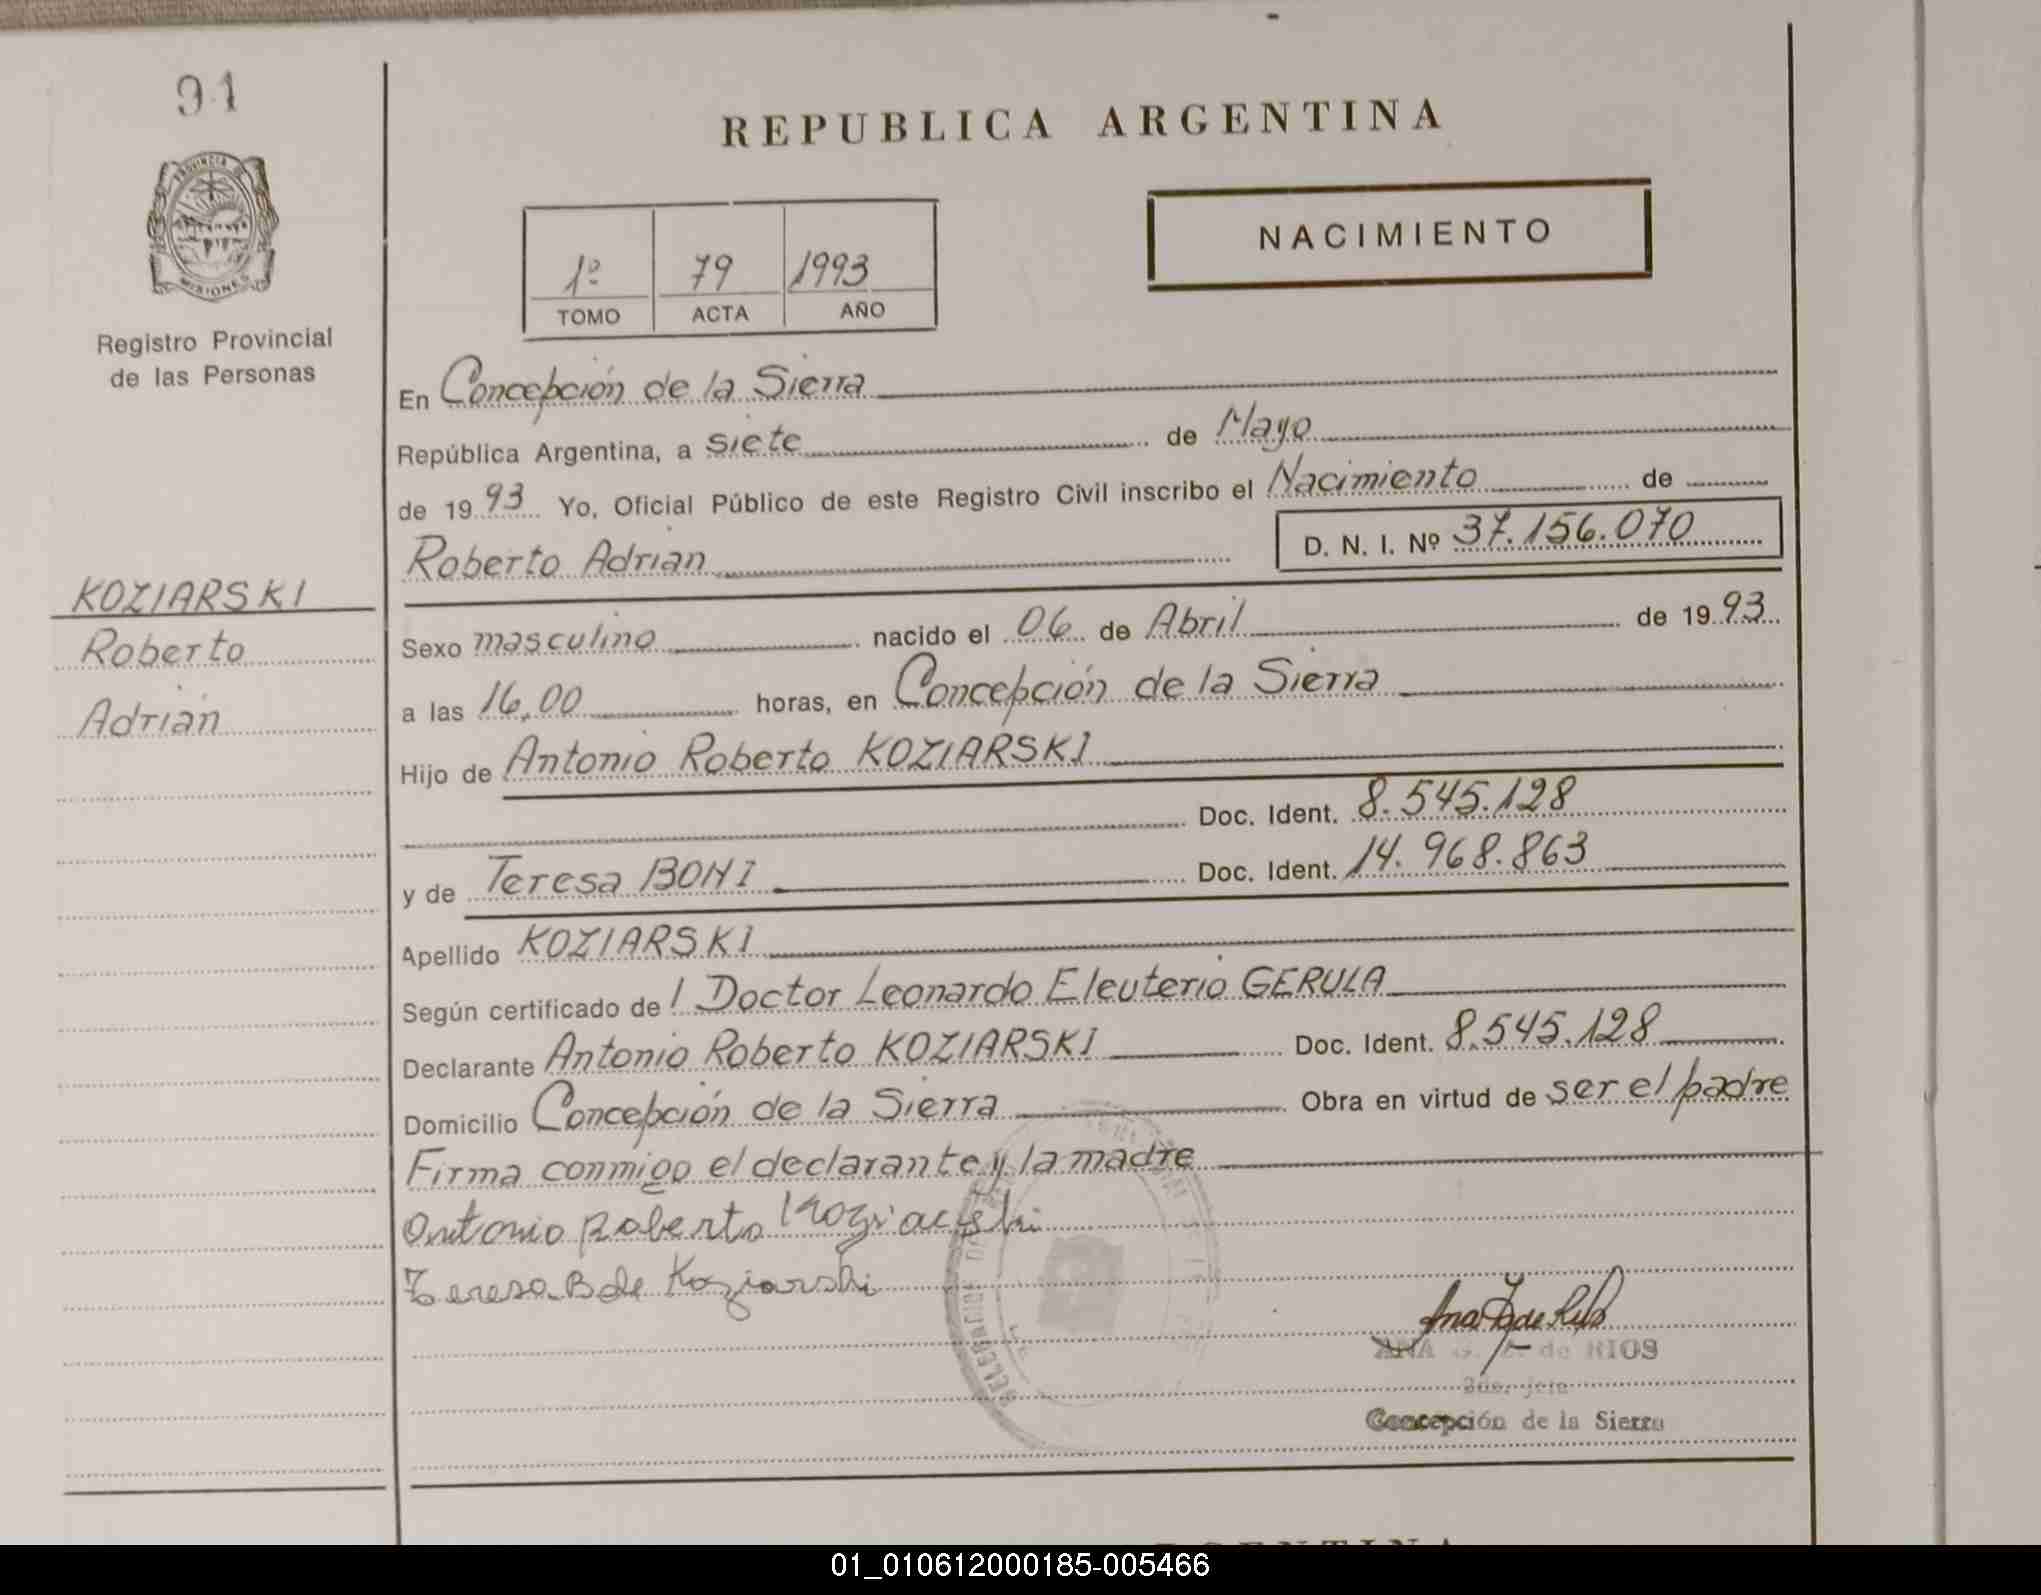 91
PROVINCIA DE
MISIONES
Registro Provincial
de las Personas
KOZIARSKI
Roberto
Adrián
REPUBLICA ARGENTINA
NACIMIENTO
1º 79 1993
TOMO ACTA AÑO
En Concepción de la Sierra
República Argentina, a siete de Mayo
de 1993 Yo, Oficial Público de este Registro Civil inscribo el Nacimiento de
Roberto Adrián D. N. I. Nº 37.156.070
Sexo masculino nacido el 06 de Abril de 1993
a las 16,00 horas, en Concepción de la Sierra
Hijo de Antonio Roberto KOZIARSKI
Doc. Ident. 8.545.128
y de Teresa BONI Doc. Ident. 14.968.863
Apellido KOZIARSKI
Según certificado de l Doctor Leonardo Eleuterio GERULA
Declarante Antonio Roberto KOZIARSKI Doc. Ident. 8.545.128
Domicilio Concepción de la Sierra Obra en virtud de ser el padre
Firma conmigo el declarante y la madre
Antonio Roberto Koziarski
Teresa B de Koziarski
ANA de RIOS
Concepción de la Sierra
01_010612000185-005466